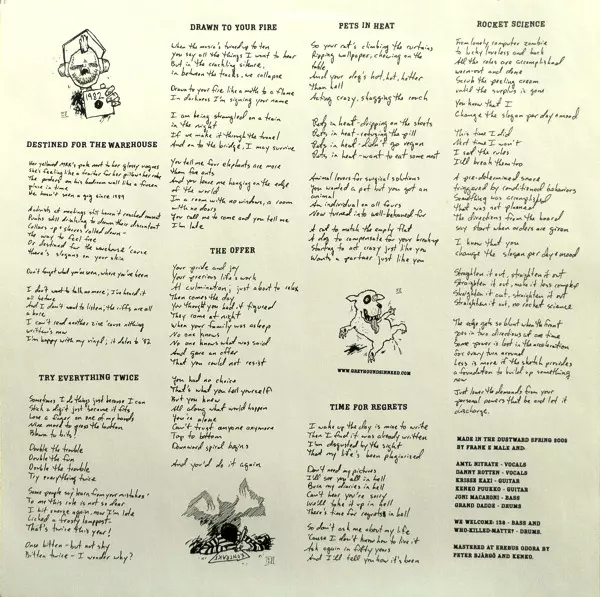 1982
DESTINED FOR THE WAREHOUSE
Her yellowed MRR's speak next to her glossy vogues
She's feeling like a traitor for her pillow her robe
The posters on his bedroom wall like a frozen
place in time
He hasn't seen a gig since 1989
Activists at meetings still haven't reached consent
Punks still drinking to drown their discontent
Collars up - sleeves rolled down -
The way to feel free
Or destined for the warehouse 'cause
there's slogans on your skin
Don't forget what you've seen, where you've been
I don't want to talk no more; I've heard it
all before
And I don't want to listen; the riffs are all
a bore
I can't read another zine 'cause nothing
written's new
I'm happy with my vinyl; it dates to '82
TRY EVERYTHING TWICE
Sometimes I do things just because I can
Stick a digit just because it fits
Lose a finger on one of my hands
Nine more to press the button
Blown to bits!
Double the trouble
Double the fun
Double the trouble
Try everything twice
Some people say learn from your mistakes
To me this role is not so dear
I hit snooze again, now I'm late
Licked a frosty lamppost
That's twice this year!
Once bitten - but not shy
Bitten twice - I wonder why?
DRAWN TO YOUR FIRE
When the music's turned up to ten
You say all the things I want to hear
But in the crackling silence,
in between the tracks, we collapse
Drawn to your fire like a moth to a flame
In darkness I'm signing your name
I am being strangled on a train
in the night
If we make it through the tunnel
And on to the bridge, I may survive
You tell me four elephants are more
than five ants
And you leave me hanging on the edge
of the world
In a room with no windows, a room
with no doors
You call me to come and you tell me
I'm late
THE OFFER
Your pride and joy
Your precious life's work
At culmination; just about to relax
Then comes the day
You thought you had it figured
They come at night
When your family was asleep
No one knows
No one knows what was said
And gave an offer
That you could not resist
You had no choice
That's what you tell yourself
But you knew
All along what would happen
You're alone
Can't trust anyone anymore
Top to bottom
Downward spiral begins
And you'd do it again
PETS IN HEAT
So your cat's climbing the curtains
Ripping wallpaper, chewing on the
table
And your dog's hot, hot, hotter
than hell
Acting crazy, shagging the couch
Pets in heat - dripping on the shorts
Pets in heat - refusing the pill
Pets in heat - didn't go vegan
Pets in heat - want to eat some meat
Animal lovers for surgical solutions
You wanted a pet but you got an
animal
An individual on all fours
Now turned into well-behaved fur
A cat to match the empty flat
A dog to compensate for your breakup
Starting to act crazy just like you
Wants a partner just like you
WWW.GREYHOUNDINNEED.COM
TIME FOR REGRETS
I wake up the day is mine to write
Then I find it was already written
I'm disgusted by the sight
That my life's been plagiarised
Don't need my pictures
I'll see you all in hell
Burn my diaries in hell
Can't hear you're sorry
We'll take it up in hell
There's time for regrets in hell
So don't ask me about my life
'Cause I don't know how to live it
Ask again in fifty years
And I'll tell you how it's been
ROCKET SCIENCE
From lonely computer zombie
to lucky loveless and back
All the roles are accomplished
worn-out and done
Scrub the peeling cream
until the surplus is gone
You know that I
Change the slogan per day & mood
This time I did
Next time I won't
I set the rules
I'll break them too
A pre-determined snare
triggered by conditioned behaviors
Something was accomplished
that was not planned
The directions from the board
say start when orders are given
I know that you
change the slogan per day & mood
Straighten it out, straighten it out
Straighten it out, make it less complex
Straighten it out, straighten it out
Straighten it out, no rocket science
The edge gets so blunt when the front
goes in two directions at one time
Some power is lost in the acceleration
for every turn around
Less is more if the sketch provides
a foundation to build up something
new
Just lower the demands from your
personal powers that be and let it
discharge.
MADE IN THE DUSTWARD SPRING 2008
BY FRANK & MALE AND:
AMYL NITRATE - VOCALS
DANNY ROTTEN - VOCALS
KRISSE KAKI - GUITAR
KENKO PUUKKO - GUITAR
JONI MACARONI - BASS
GRAND DADDE - DRUMS
WE WELCOME: 138 - BASS AND
WHO-KILLED-MATTE? - DRUMS.
MASTERED AT ERENUS ODORA BY
PETER BJÄRGÖ AND KENKO.